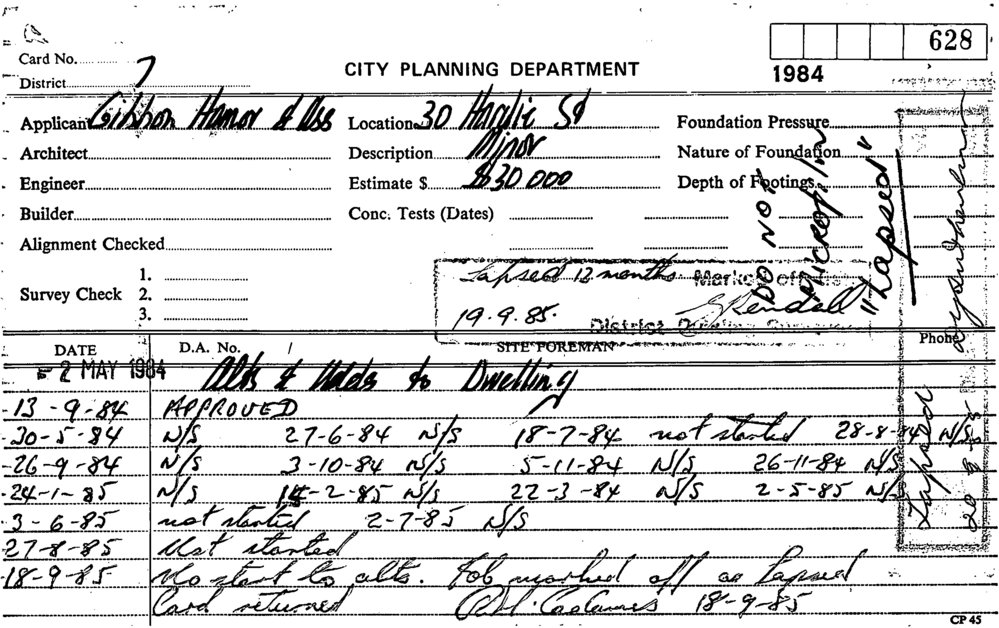 628
Card No.
7
CITY PLANNING DEPARTMENT
1984
District
Applicant Gibbon Hamor & Ass
Location 30 St
Foundation Pressure
Architect
Description Minor
Nature of Foundation
Engineer
Estimate $ $30 000
Depth of Footings
Builder
Conc. Tests (Dates)
Alignment Checked
DO NOT
Microfilm
"Lapsed"
Survey Check
1.
2.
3.
Lapsed 12 months Marked off
19.9.85. Kendall
District
DATE
D.A. No. /
SITE FOREMAN
Phone
- 2 MAY 1984 Alts & Adds to Dwelling
13-9-84 APPROVED
30-5-84 N/S 27-6-84 N/S 18-7-84 not started 28-8-84 N/S
26-9-84 N/S 3-10-84 N/S 5-11-84 N/S 26-11-84 N/S
24-1-85 N/S 14-2-85 N/S 22-3-84 N/S 2-5-85 N/S
3-6-85 not started 2-7-85 N/S
27-8-85 Not started
18-9-85 No start to alts. Job marked off as Lapsed
Card returned 18-9-85
Lapsed
CP 45